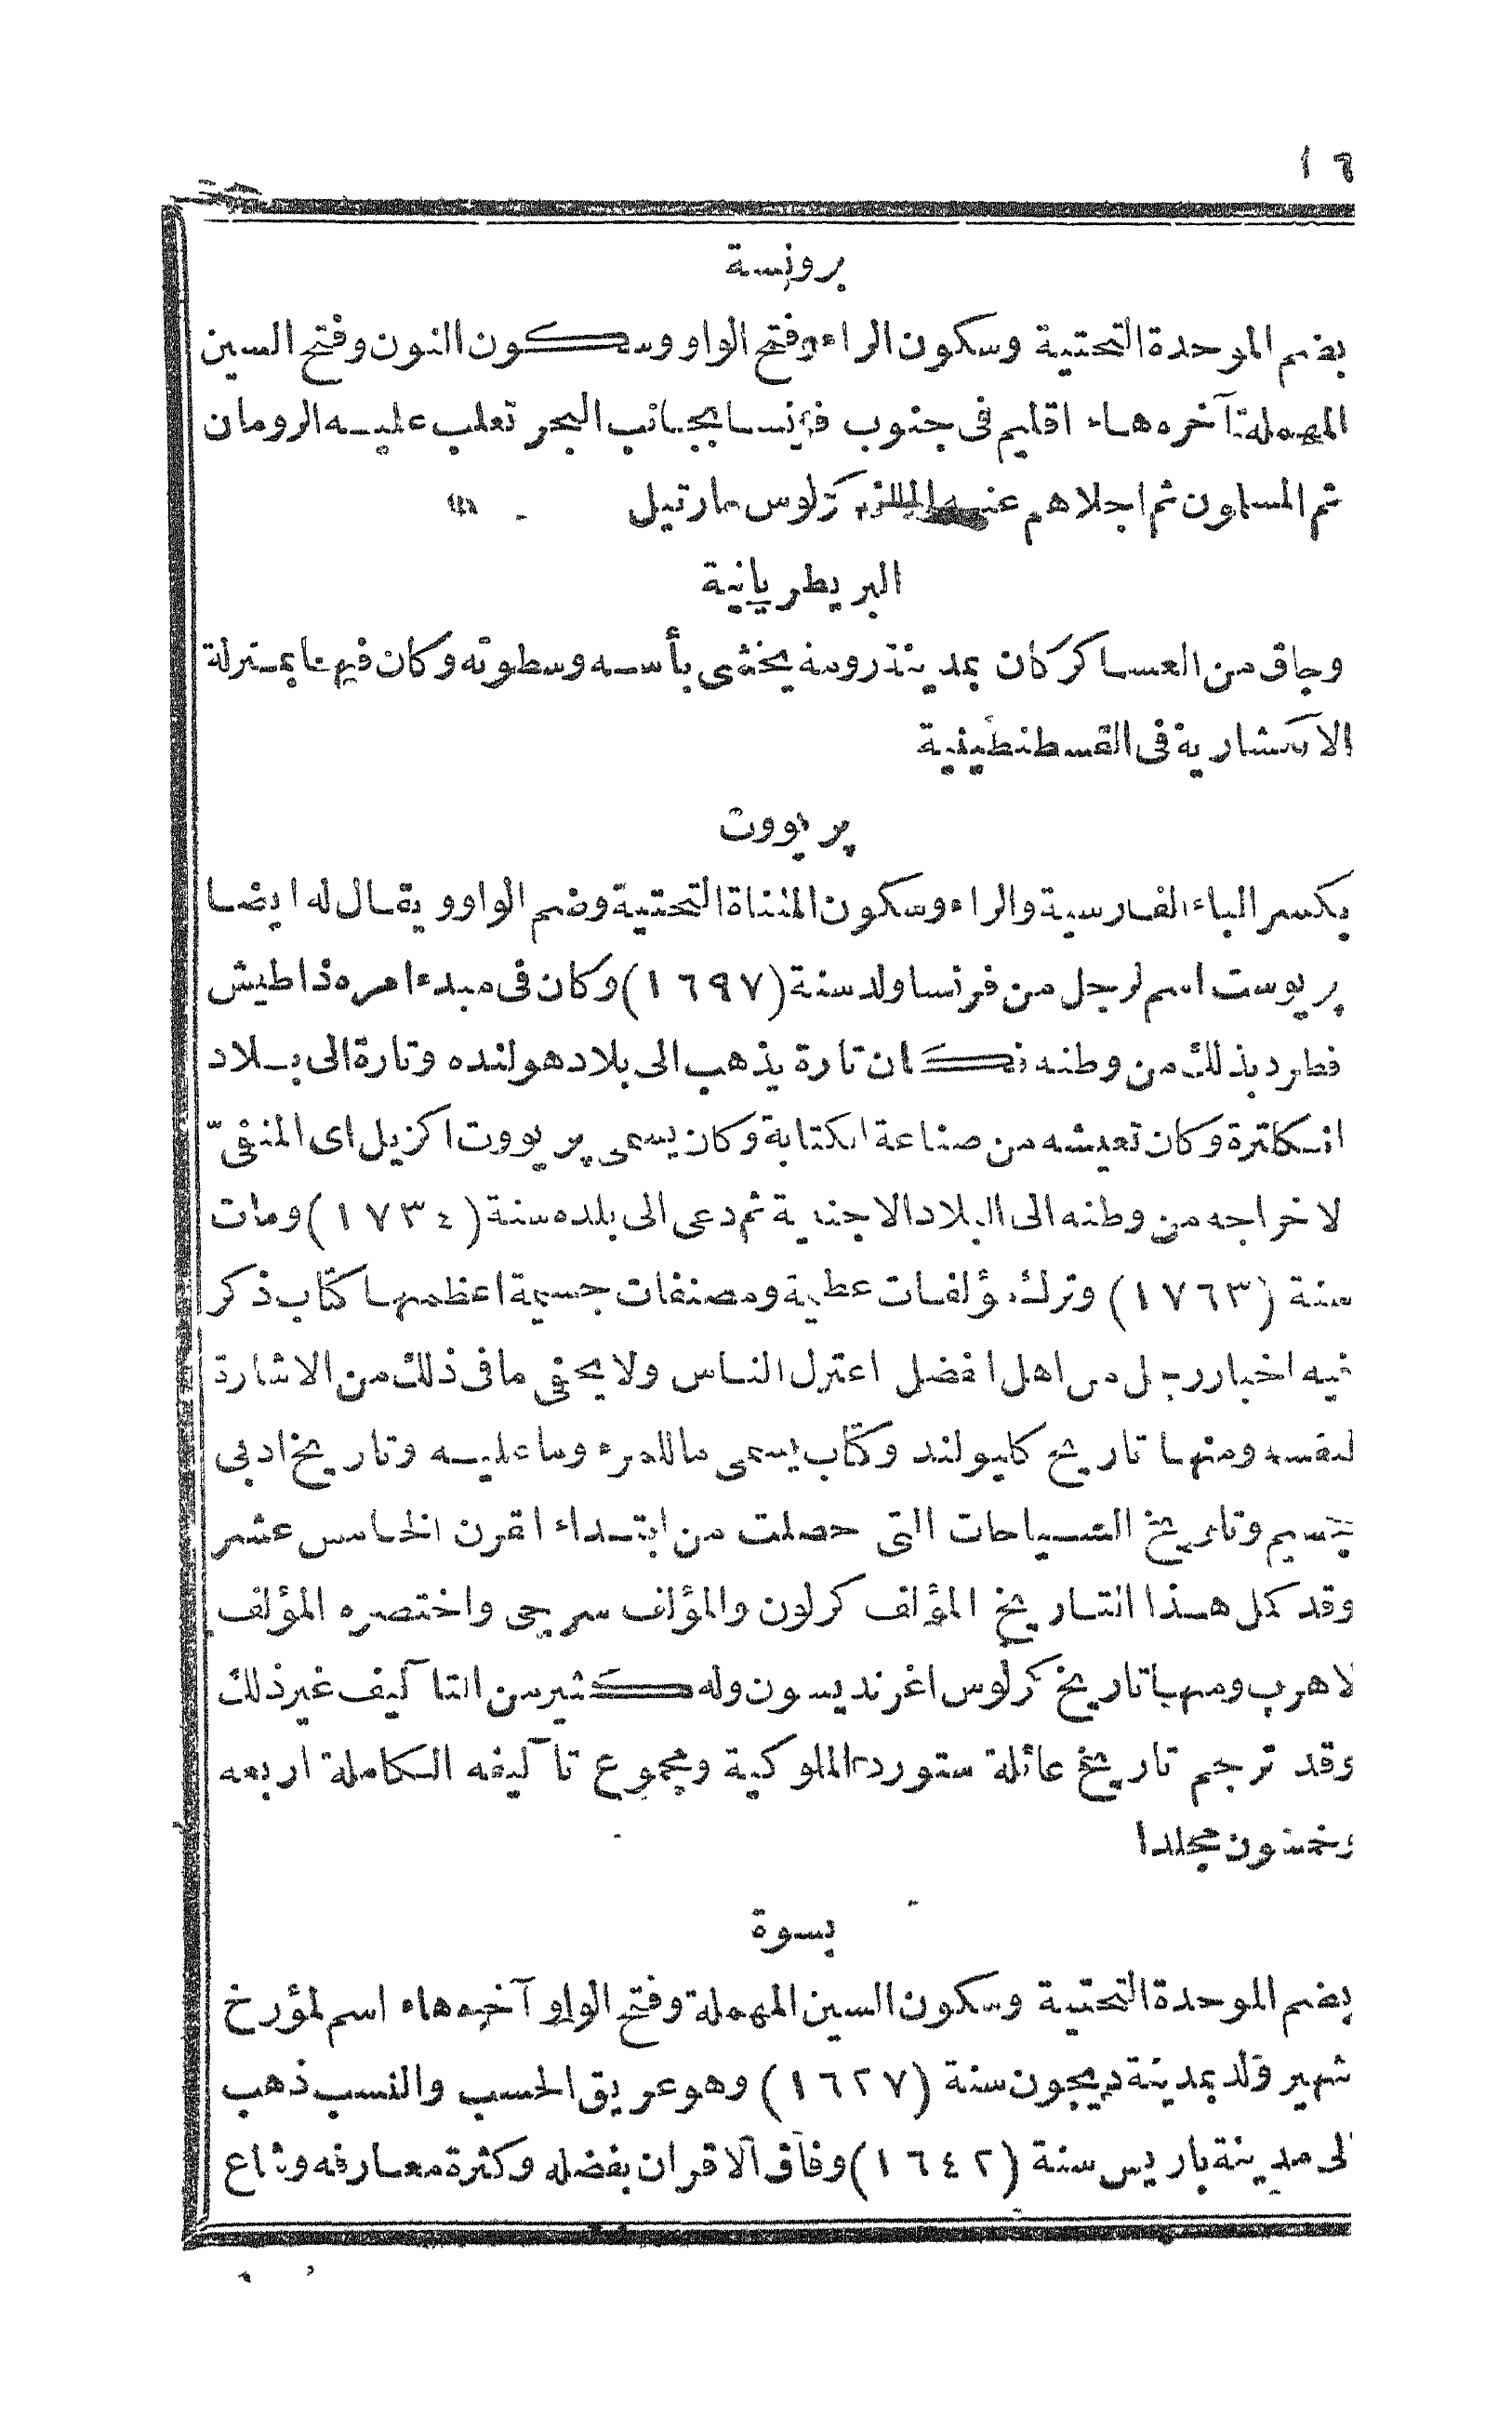 ١٦
برونسة
بضم الموحدة التحتية وسكون الراء وفتح الواو وسكون النون وفتح السين
المهملة آخره هاء اقليم فى جنوب فرنسا بجانب البحر تغلب عليه الرومان
ثم المسلمون ثم اجلاهم عنه الملك كرلوس مارتيل
البريطريانية
وجاق من العساكر كان بمدينة رومة يخشى بأسه وسطوته وكان فيها بمنزلة
الانكشارية فى القسطنطينية
پريووت
بكسر الباء الفارسية والراء وسكون المثناة التحتية وضم الواو ويقال له ايضا
پريوست اسم لرجل من فرنسا ولد سنة (١٦٩٧) وكان فى مبدء امره ذا طيش
فطرد بذلك من وطنه فكان تارة يذهب الى بلاد هولنده وتارة الى بلاد
انكلترة وكان تعيشه من صناعة الكتابة وكان يسمى پريووت اكزيل اى المنفىّ
لاخراجه من وطنه الى البلاد الاجنبية ثم دعى الى بلده سنة (١٧٣٤) ومات
سنة (١٧٦٣) وترك مؤلفات عظيمة ومصنفات جسيمة اعظمها كتاب ذكر
فيه اخبار رجل من اهل الفضل اعتزل الناس ولا يخفى ما فى ذلك من الاشارة
لنفسه ومنها تاريخ كليولند وكتاب يسمى ما للمرء وما عليه وتاريخ ادبى
جسيم وتاريخ السياحات التى حصلت من ابتداء القرن الخامس عشر
وقد كمل هذا التاريخ المؤلف كرلون والمؤلف سرجى واختصره المؤلف
لاهرپ ومنها تاريخ كرلوس اغرنديسون وله كثير من التآليف غير ذلك
وقد ترجم تاريخ عائلة ستورد الملوكية ومجموع تآليفه الكاملة اربعه
وخمسون مجلدا
بسوة
بضم الموحدة التحتية وسكون السين المهملة وفتح الواو آخره هاء اسم لمؤرخ
شهير ولد بمدينة ديجون سنة (١٦٢٧) وهو عريق الحسب والنسب ذهب
الى مدينة باريس سنة (١٦٤٢) وفاق الاقران بفضله وكثرة معارفه وشاع